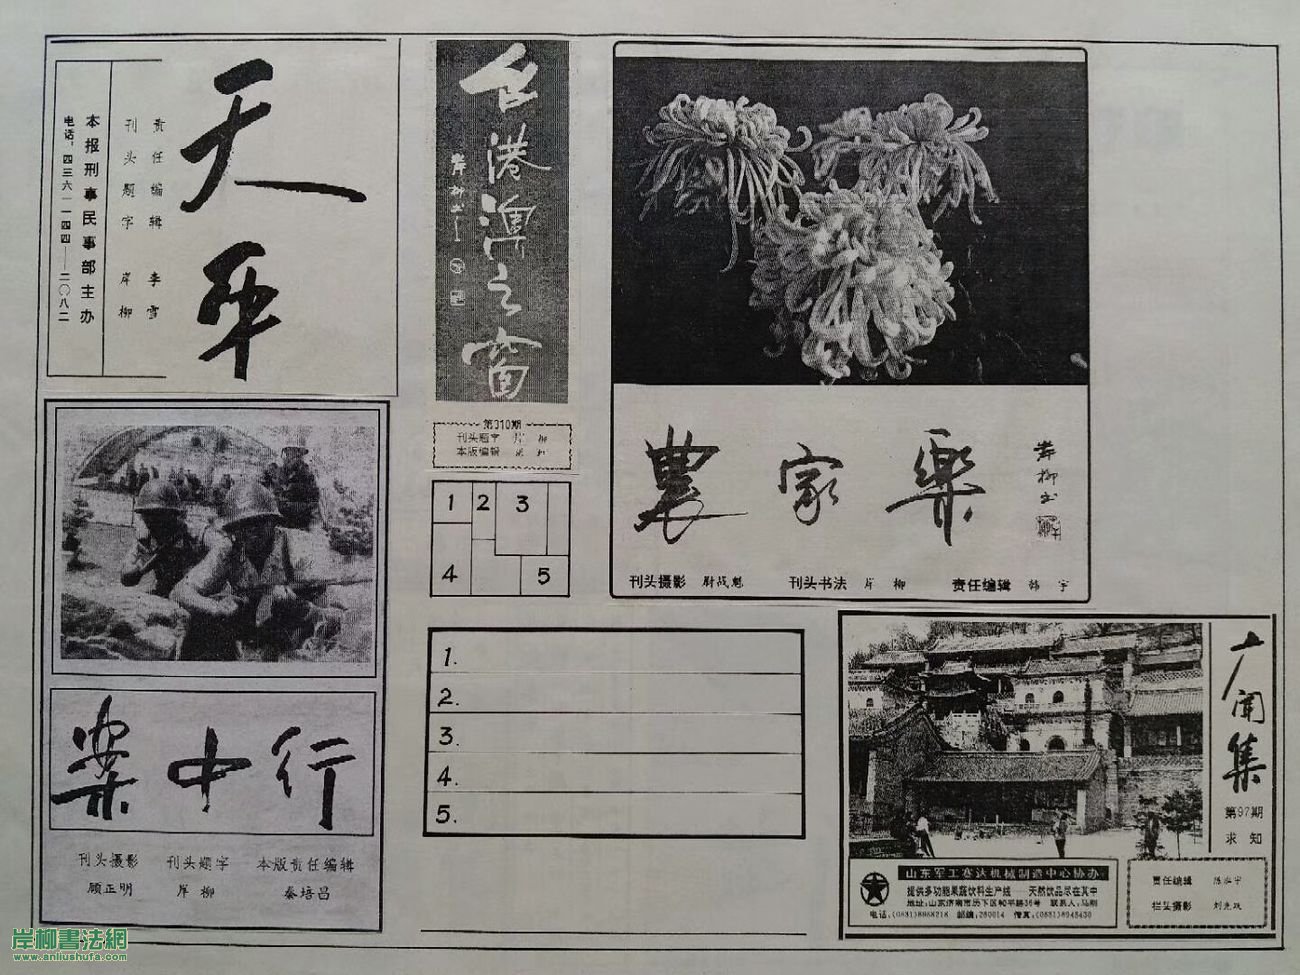 天平
责任编辑 李雪
刊头题字 岸柳
本报刑事民事部主办
电话:四三六一一四四——二〇八二
台港澳之窗
岸柳书
第310期
刊头题字 岸柳
本版编辑
1 2 3
4 5
農家樂
岸柳书
刊头摄影 尉战魁 刊头书法 岸柳 责任编辑 韩宇
案中行
刊头摄影 刊头题字 本版责任编辑
顾正明 岸柳 秦培昌
1.
2.
3.
4.
5.
广闻集
第97期
求知
山东军工赛达机械制造中心协办
提供多功能果蔬饮料生产线——天然饮品尽在其中
地址:山东济南市历下区和平路36号 联系人:马刚
电话:(0531)8968218 邮编:250014 传真:(0531)8948430
责任编辑
栏头摄影
岸柳書法網
www.anliushufa.com